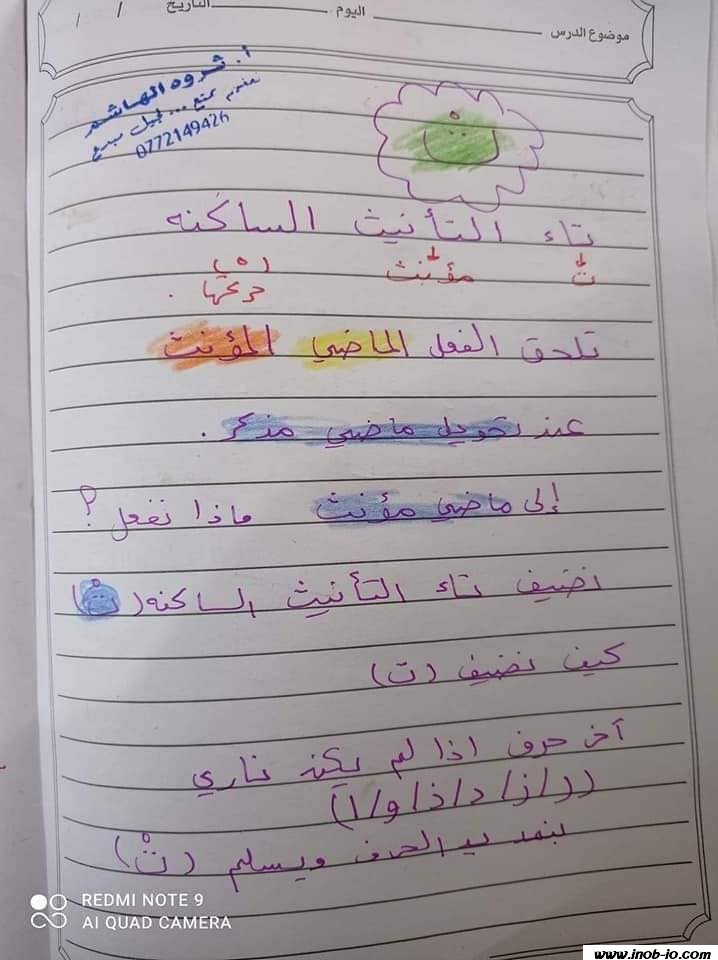 موضوع الدرس
اليوم
التاريخ / /
أ. ثروه الهاشم
0772149426
تْ
تاء التأنيث الساكنه
تْ مؤنث (ْ)
حركتها .
تلحق الفعل الماضي المؤنث
عند تحويل ماضي مذكر .
إلى ماضي مؤنث ماذا نفعل ؟
نضيف تاء التأنيث الساكنه (تْ)
كيف نضيف (ت)
آخر حرف اذا لم يكن ناري
(ر/ز/د/ذ/و/ا)
بنمد يد الحرف ويسلم (تْ)
REDMI NOTE 9
AI QUAD CAMERA
www.inob-jo.com